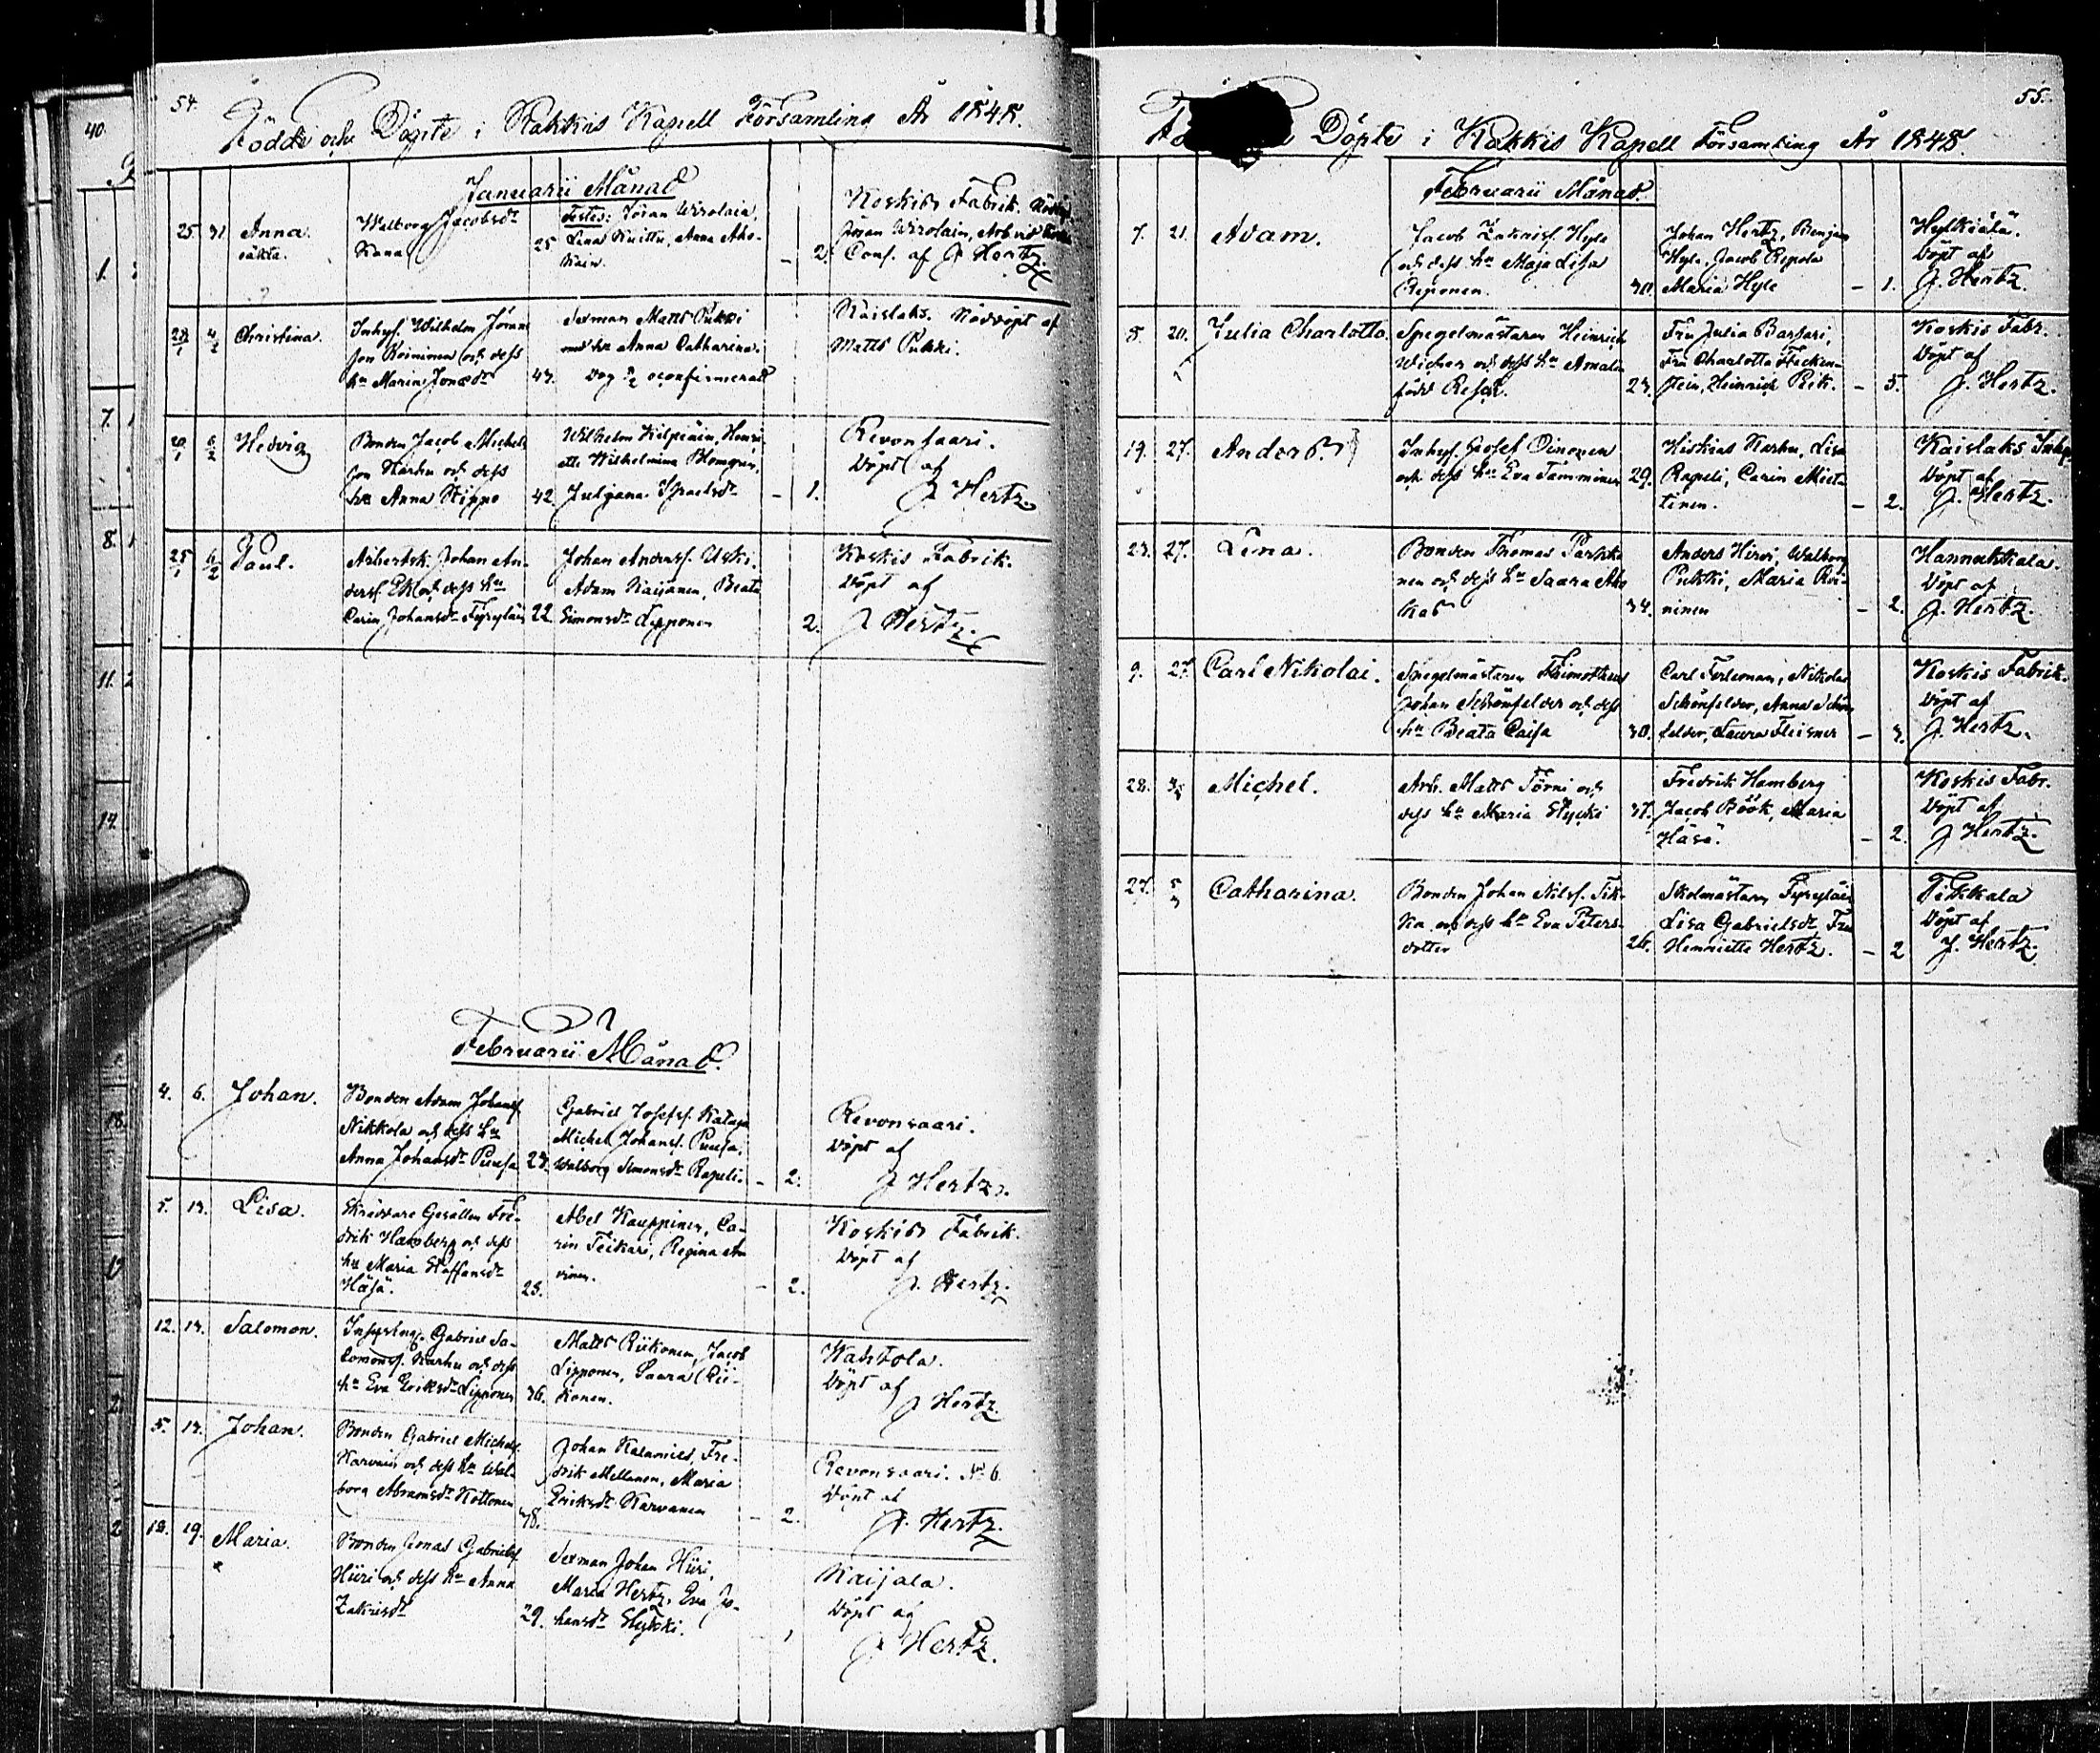 54.
Födde och Döpte i Kakkis Kapell Församling År 1848.
Januarii Månad
25. 31. Anna. oäkta.
Walborg Jacobsdr
Kana
Testes: Jöran Wirolain,
Lena Kuittu, Anna Aho-
kain.
25
- 2.
Koskis Fabrik.
Jöran Wirolain,
Conf. af J. Hertz.
28/1 4/2 Christina.
Inhys. Wilhelm Jöran
son Koininen och dess
hu Marina Jonædr
43.
Sexman Matts Pukki
med hu Anna Catharina.
Kaislaks. Nöddöpt af
Matts Pukki.
6/2 Hedvig
Bonden Jacob Michels
son Karhu och dess
hu Anna Kippo
42.
Wilhelm Kilpiäin, Henri
ette Wilhelmina Blomqvist,
Juliana Israelsdr
- 1.
Revonsaari.
Döpt af
J. Hertz.
25/1 6/2 Paul.
Arbetsk. Johan An-
derss. Ek och dess hu
Carin Johansdr Fyryläin
22.
Johan Anderss. Uski,
Adam Kaijanen, Beata
Simonsdr Lipponen
2.
Koskis Fabrik.
Döpt af
J. Hertz.
Februarii Månad.
4. 6. Johan.
Bonden Adam Johanss.
Nikkola och dess hu
Anna Johansdr Puusa
23.
Gabriel Josefss. Kataja
Michel Johanss. Puusa,
Walborg Simonsdr Rapeli.
- 2.
Revonsaari.
Döpt af
J. Hertz.
5. 13. Lisa.
Skräddare Gesällen Fre-
drik Hamberg och dess
hu Maria Staffansdr
Häsä.
25.
Abel Kauppinen, Ca-
rin Teikari, Regina
- 2.
Koskis Fabrik.
Döpt af
J. Hertz.
12. 13. Salomon.
Inhysing. Gabriel Sa-
lomonss. Karhu och dess
hu Eva Eriksdr Lipponen
36.
Matts Riikonen, Jacob
Lipponen, Saara Rii-
konen.
Kahtola.
Döpt af
J. Hertz.
5. 13. Johan.
Bonden Gabriel Michelss.
Karvain och dess hu Wal-
borg Abramsdr Kottonen
38.
Johan Kalamies, Fre-
drik Mellanen, Maria
Eriksdr Karvanen
- 2.
Revonsaari. No 6.
Döpt af
J. Hertz.
18. 19. Maria.
Bonden Jonas Gabrielss.
Hiiri och dess hu Anna
Zakrisdr
29.
Sexman Johan Hiiri,
Maria Hertz, Eva Jo-
hansdr Slykki.
Kaijala.
Döpt af
J. Hertz.
55.
Döpte i Kakkis Kapell Församling År 1848.
Februarii Månad.
7. 21. Adam.
Jacob Zakriss. Hyle
och dess hu Maja Lisa
Reponen.
30.
Johan Hertz, Benjam
Hyle, Jacob Repola
Maria Hyle
- 1.
Hylkiälä.
Döpt af
J. Hertz.
8. 20. Julia Charlotta.
Spegelmästaren Heinrich
Wicher och dess hu Amalia
född Resch.
23.
Fru Julia Barsari,
Fru Charlotta Flecken-
stein, Heinrich Rik.
- 5.
Koskis Fabr.
Döpt af
J. Hertz.
19. 27. Anders.
Inhys. Josef Oinonen
och dess hu Eva Tamminen
29.
Hiskias Karhu, Lisa
Rapeli, Carin Miet-
tinen.
- 2.
Kaislaks
Döpt af
J. Hertz.
23. 27. Lena.
Bonden Thomas Parkki-
nen och dess hu Saara
34.
Anders Hirvi, Walborg
Pukki, Maria Koi-
ninen
- 2.
Hannukkala.
Döpt af
J. Hertz.
9. 27. Carl Nikolai.
Spegelmästaren Thimotheus
Johan Schönfelder och dess
hu Beata Caisa
30.
Carl Ferleman, Nikolai
Schönfelder, Anna Schön-
felder, Laura Fleisner
- 3.
Koskis Fabrik.
Döpt af
J. Hertz.
28. Michel.
Arb. Matts Törni och
dess hu Maria Slycki
37.
Fredrik Hamberg
Jacob Böök, Maria
Häsä.
- 2.
Koskis Fabr.
Döpt af
J. Hertz.
27. 5/3 Catharina.
Bonden Johan Nilss. Tik-
ka och dess hu Eva Peters-
dotter
26.
Skolmästaren Fyryläin
Lisa Gabrielsdr, Fru
Henriette Hertz.
- 2
Tikkala
Döpt af
J. Hertz.